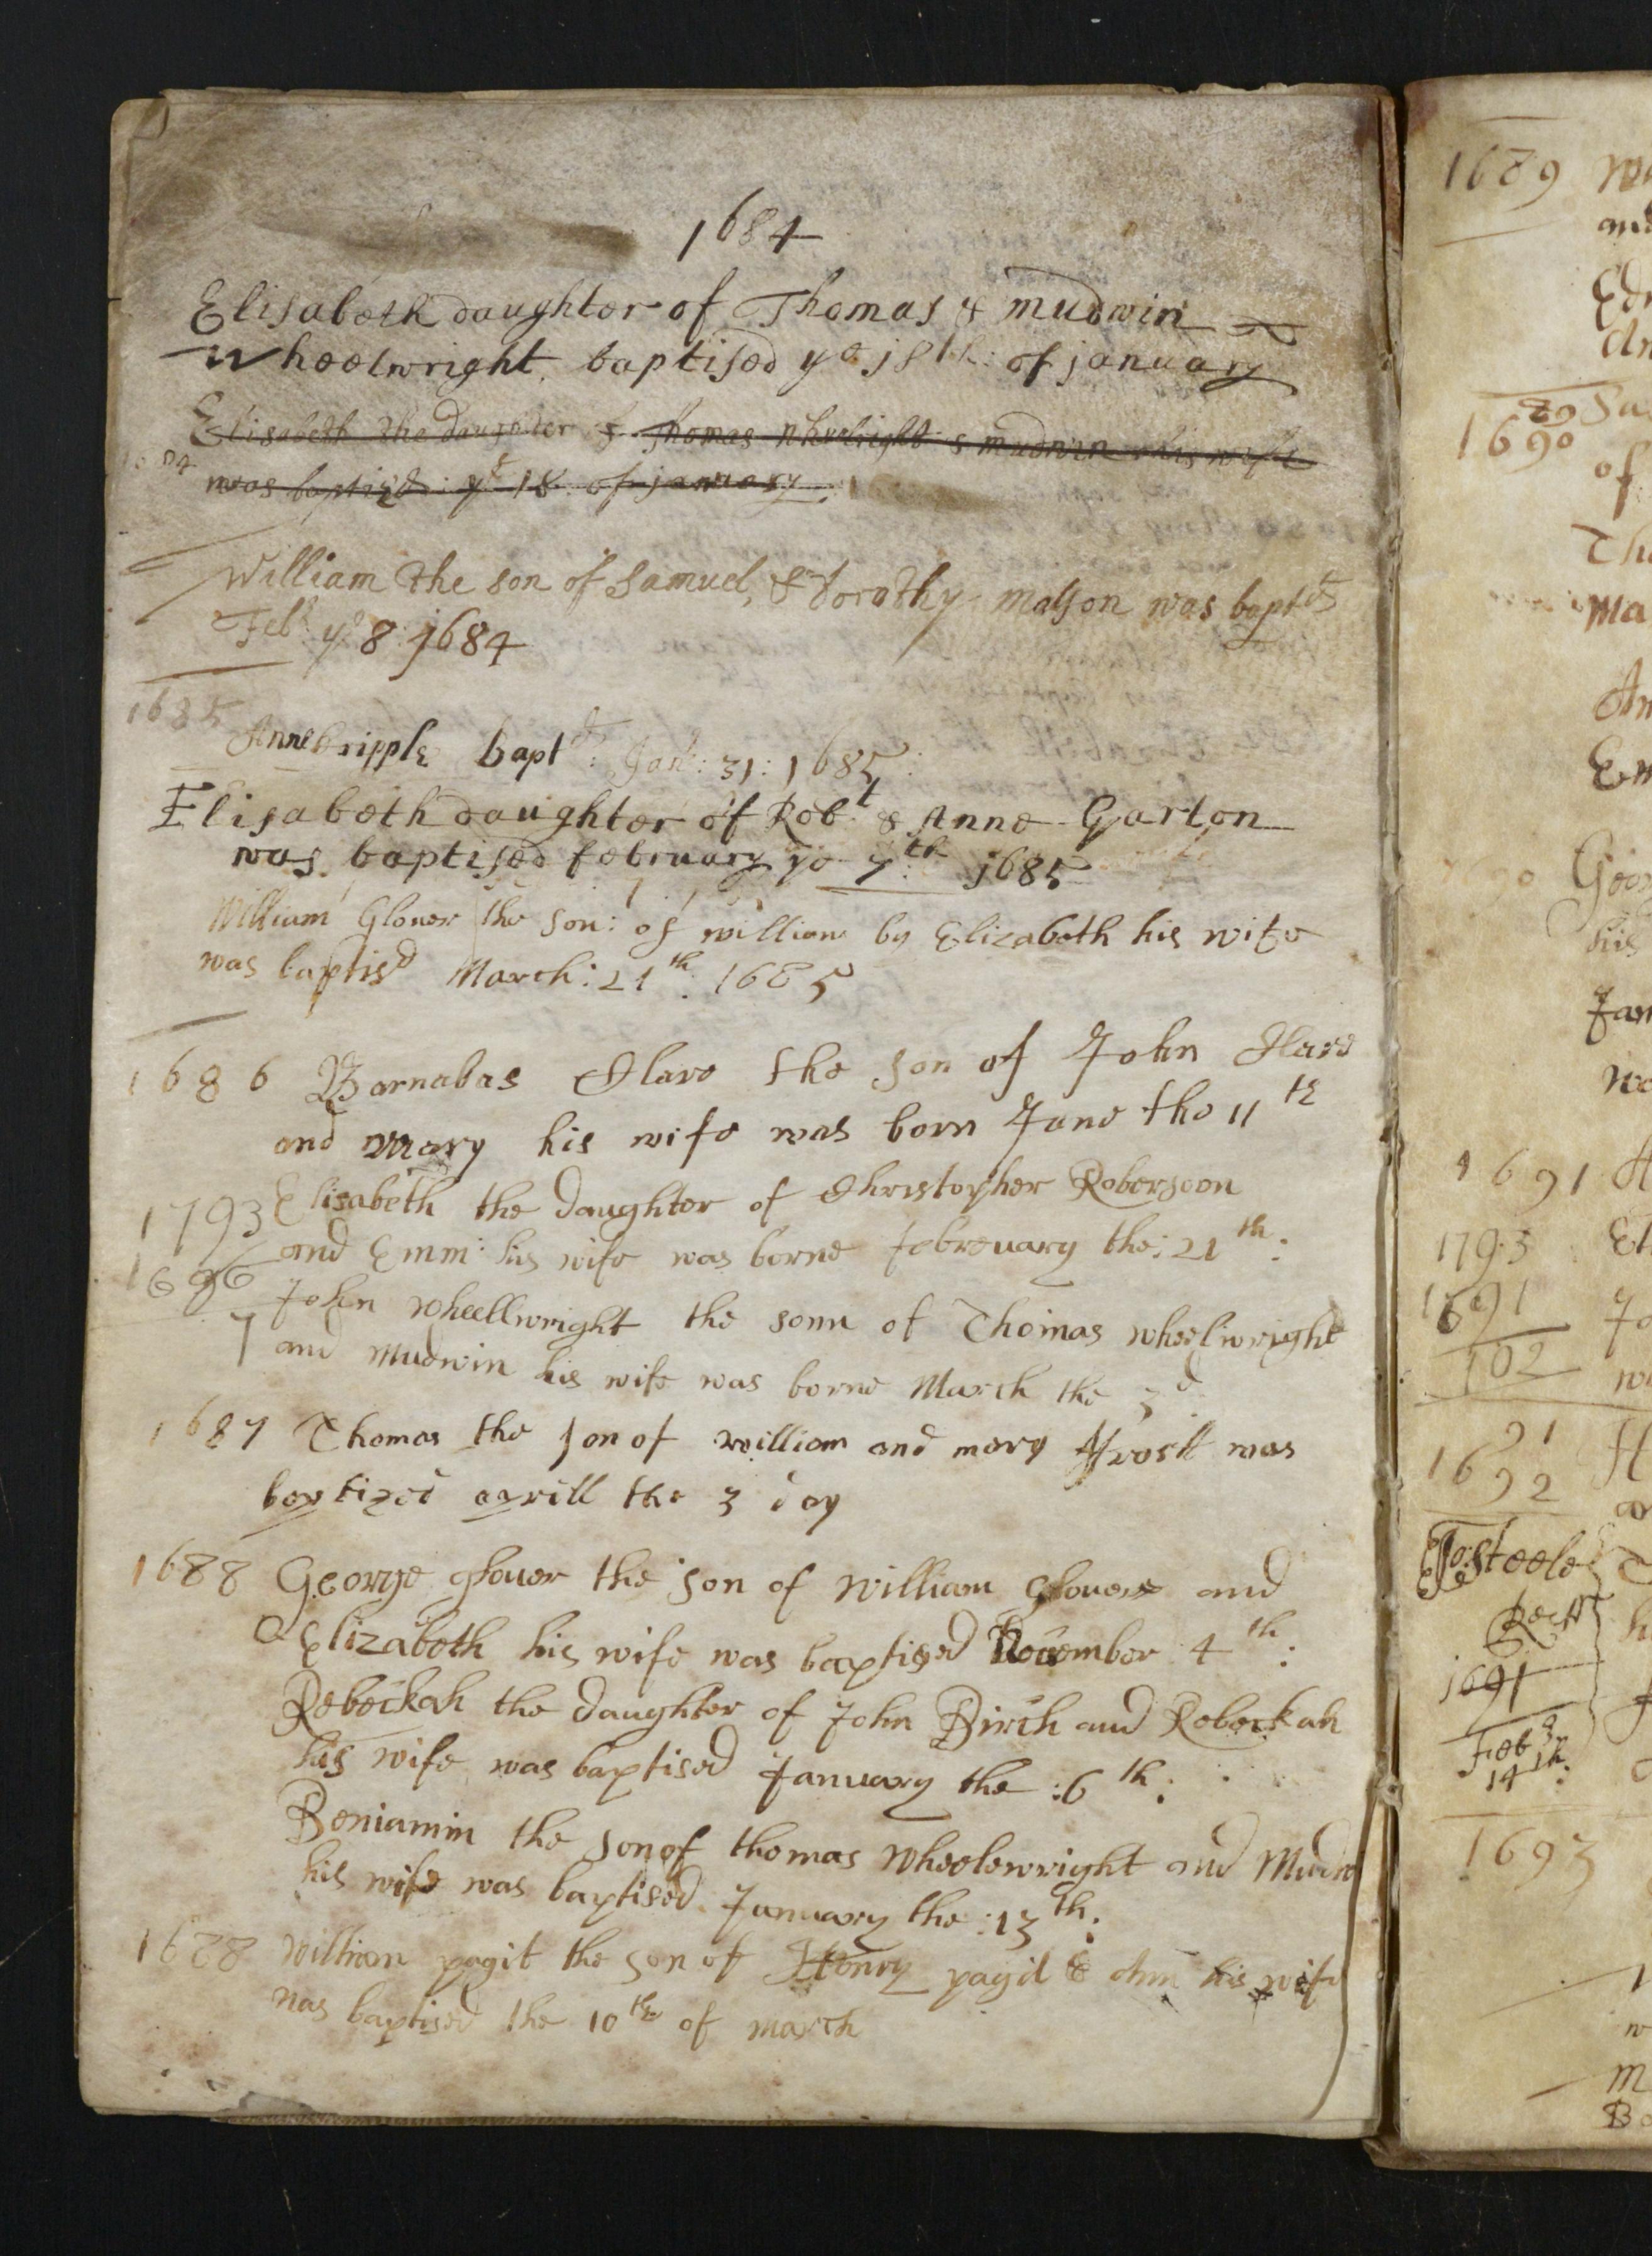 1684
Elisabeth daughter of Thomas & mudwin
Wheelwright baptised ye 18th: of january
Elisabeth the daughter of Thomas Whelright & mudwin his wife
1684 was baptized: ye 18 of january
William the son of Samuel, & dorothy matson was baptd
Feb: ye 8 1684
1685
Anne Bripple bapt:d Jan: 31: 1685:
Elisabeth daughter of Robt & Anne Garton
was baptised february ye 7:th 1685
William Glover the Son: of william by Elizabeth his wife
was baptisd March: 21th: 1685
1686 Barnabas Clare the son of John Clare
and mary his wife was born June the 11th
1793 Elisabeth the daughter of Christopher Robersoon
and Emm: his wife was borne febreuary the: 21th:
1686
John wheellwright the sonn of Thomas wheelwright
7 and Mudwin his wife was borne March the 3d
1687 Thomas the son of william and mary ffrost was
baptized aprill the 3 day
1688 George glover the son of William Glovers and
Elizabeth his wife was baptised November 4th:
Rebeckah the daughter of John Birch and Rebeckah
his wife was baptised January the :6th:
Beniamin the son of thomas Wheelewright and Mudw
his wife was baptised January the :13th:
1688 William pagit the son of Henry pagit & Ann his wife
was baptised the 10th of march
1689
and
1690
of
Tho
Ma
An
Geor
his
1691
1793
1691
102
91
1692
Jo: Steele
Rectr
1691
Feb
14th:
1693